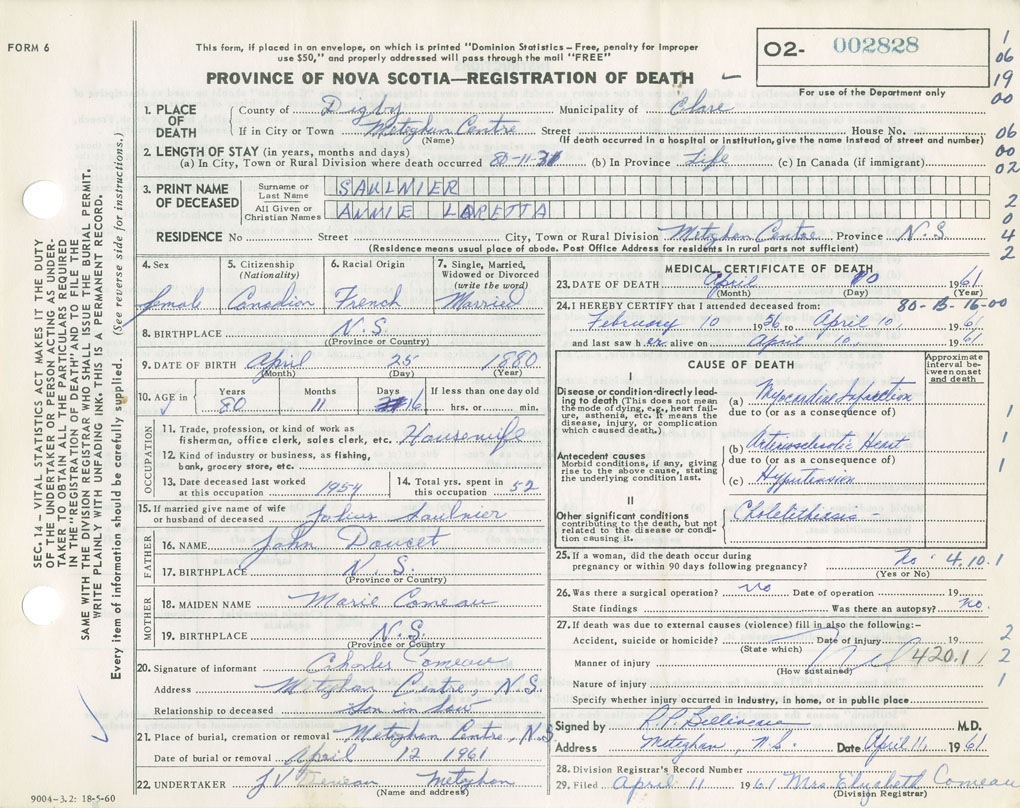 FORM 6
This form, if placed in an envelope, on which is printed "Dominion Statistics – Free, penalty for improper
use $50," and properly addressed will pass through the mail "FREE"
PROVINCE OF NOVA SCOTIA—REGISTRATION OF DEATH
O2- 002828
For use of the Department only
1
06
19
00
06
00
02
2
0
4
2
1. PLACE OF DEATH
County of Digby Municipality of Clare
If in City or Town Meteghan Centre Street House No.
(Name) (If death occurred in a hospital or institution, give the name instead of street and number)
2. LENGTH OF STAY (in years, months and days)
(a) In City, Town or Rural Division where death occurred 80-11-31 (b) In Province Life (c) In Canada (if immigrant)
3. PRINT NAME OF DECEASED
Surname or Last Name SAULNIER
All Given or Christian Names ANNIE LORETTA
RESIDENCE No Street City, Town or Rural Division Meteghan Centre Province N.S.
(Residence means usual place of abode. Post Office Address for residents in rural parts not sufficient)
4. Sex 5. Citizenship 6. Racial Origin 7. Single, Married,
(Nationality) Widowed or Divorced
(write the word)
female Canadian French Married
8. BIRTHPLACE N.S.
(Province or Country)
9. DATE OF BIRTH April 25 1880
(Month) (Day) (Year)
10. AGE in Years Months Days If less than one day old
80 11 16 hrs. or min.
OCCUPATION
11. Trade, profession, or kind of work as
fisherman, office clerk, sales clerk, etc. Housewife
12. Kind of industry or business, as fishing,
bank, grocery store, etc.
13. Date deceased last worked
at this occupation 1954
14. Total yrs. spent in
this occupation 52
15. If married give name of wife
or husband of deceased Julius Saulnier
FATHER
16. NAME John Doucet
17. BIRTHPLACE N.S.
(Province or Country)
MOTHER
18. MAIDEN NAME Marie Comeau
19. BIRTHPLACE N.S.
(Province or Country)
20. Signature of informant Charles Comeau
Address Meteghan Centre, N.S.
Relationship to deceased Son in law
21. Place of burial, cremation or removal Meteghan Centre, N.S.
Date of burial or removal April 12 1961
22. UNDERTAKER J.V. Meteghan
(Name and address)
9004–3.2: 18-5-60
MEDICAL CERTIFICATE OF DEATH
23. DATE OF DEATH April 10 1961
(Month) (Day) (Year)
24. I HEREBY CERTIFY that I attended deceased from: 80-B-16-00
February 10 1956 to April 10, 1961
and last saw her alive on April 10, 1961
CAUSE OF DEATH
Approximate interval between onset and death
I
Disease or condition directly leading to death (This does not mean the mode of dying, e.g., heart failure, asthenia, etc. It means the disease, injury, or complication which caused death.)
(a) Myocardial Infarction
due to (or as a consequence of)
Antecedent causes
Morbid conditions, if any, giving rise to the above cause, stating the underlying condition last.
(b) Arteriosclerotic Heart
due to (or as a consequence of)
(c) Hypertension
II
Other significant conditions
contributing to the death, but not related to the disease or condition causing it.
Cholelithiasis -
1
1
1
25. If a woman, did the death occur during
pregnancy or within 90 days following pregnancy? No 4.10.1
(Yes or No)
26. Was there a surgical operation? No Date of operation 19
State findings Was there an autopsy? no.
27. If death was due to external causes (violence) fill in also the following:-
Accident, suicide or homicide? Date of injury 19 2
(State which)
Manner of injury Nil 420.1 / 2
(How sustained)
Nature of injury 1
Specify whether injury occurred in industry, in home, or in public place
Signed by P.P. Belliveau M.D.
Address Meteghan, N.S. Date April 11 1961
28. Division Registrar's Record Number
29. Filed April 11 1961 Mrs Elizabeth Comeau
(Division Registrar)
SEC. 14 – VITAL STATISTICS ACT MAKES IT THE DUTY
OF THE UNDERTAKER OR PERSON ACTING AS UNDER-
TAKER TO OBTAIN ALL THE PARTICULARS REQUIRED
IN THE "REGISTRATION OF DEATH" AND TO FILE THE
SAME WITH THE DIVISION REGISTRAR WHO SHALL ISSUE THE BURIAL PERMIT.
WRITE PLAINLY WITH UNFADING INK. THIS IS A PERMANENT RECORD.
Every item of information should be carefully supplied. (See reverse side for instructions.)